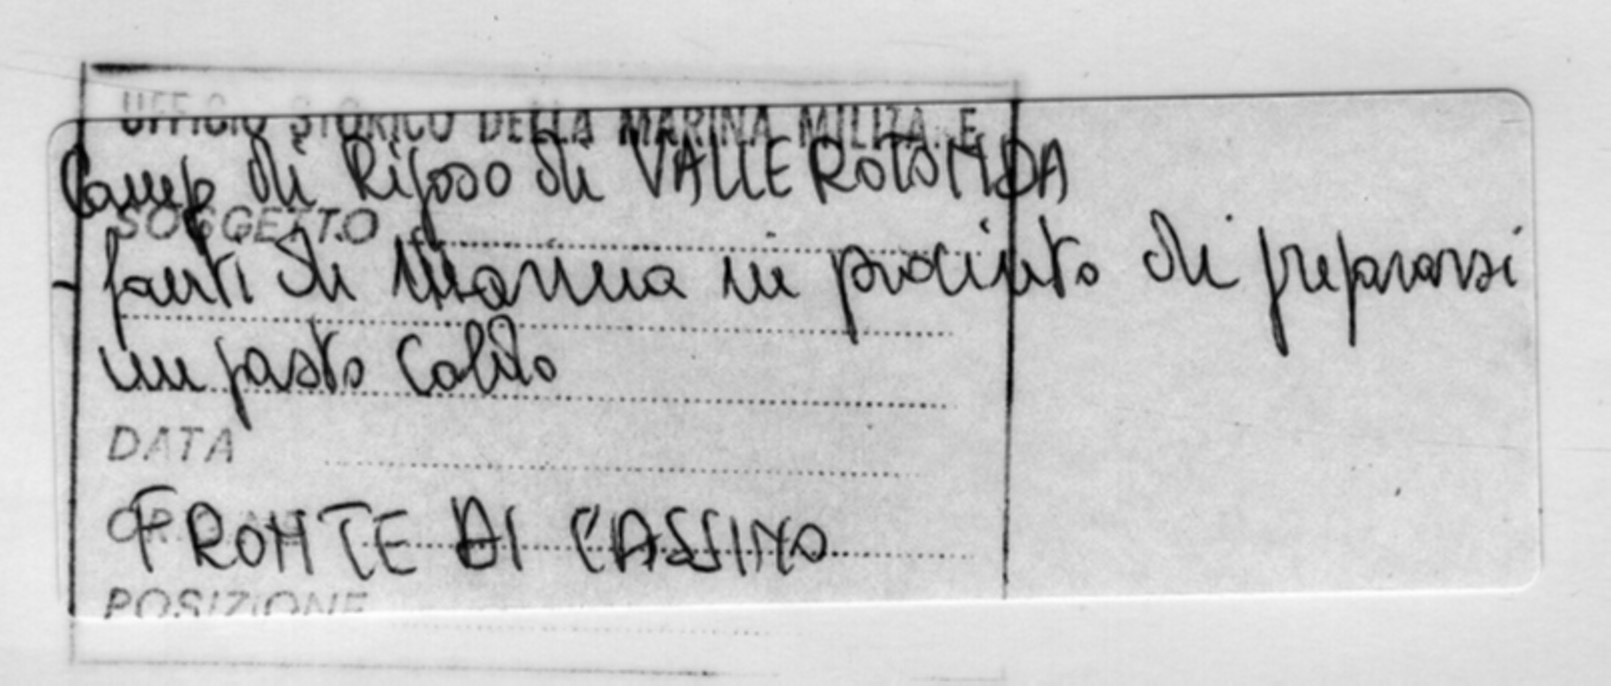 UFFICIO STORICO DELLA MARINA MILITARE
Camp di Riposo di VALLEROTONDA
SOGGETTO
- fanti di Marina in procinto di prepararsi
un pasto caldo
DATA
FRONTE DI CASSINO
POSIZIONE